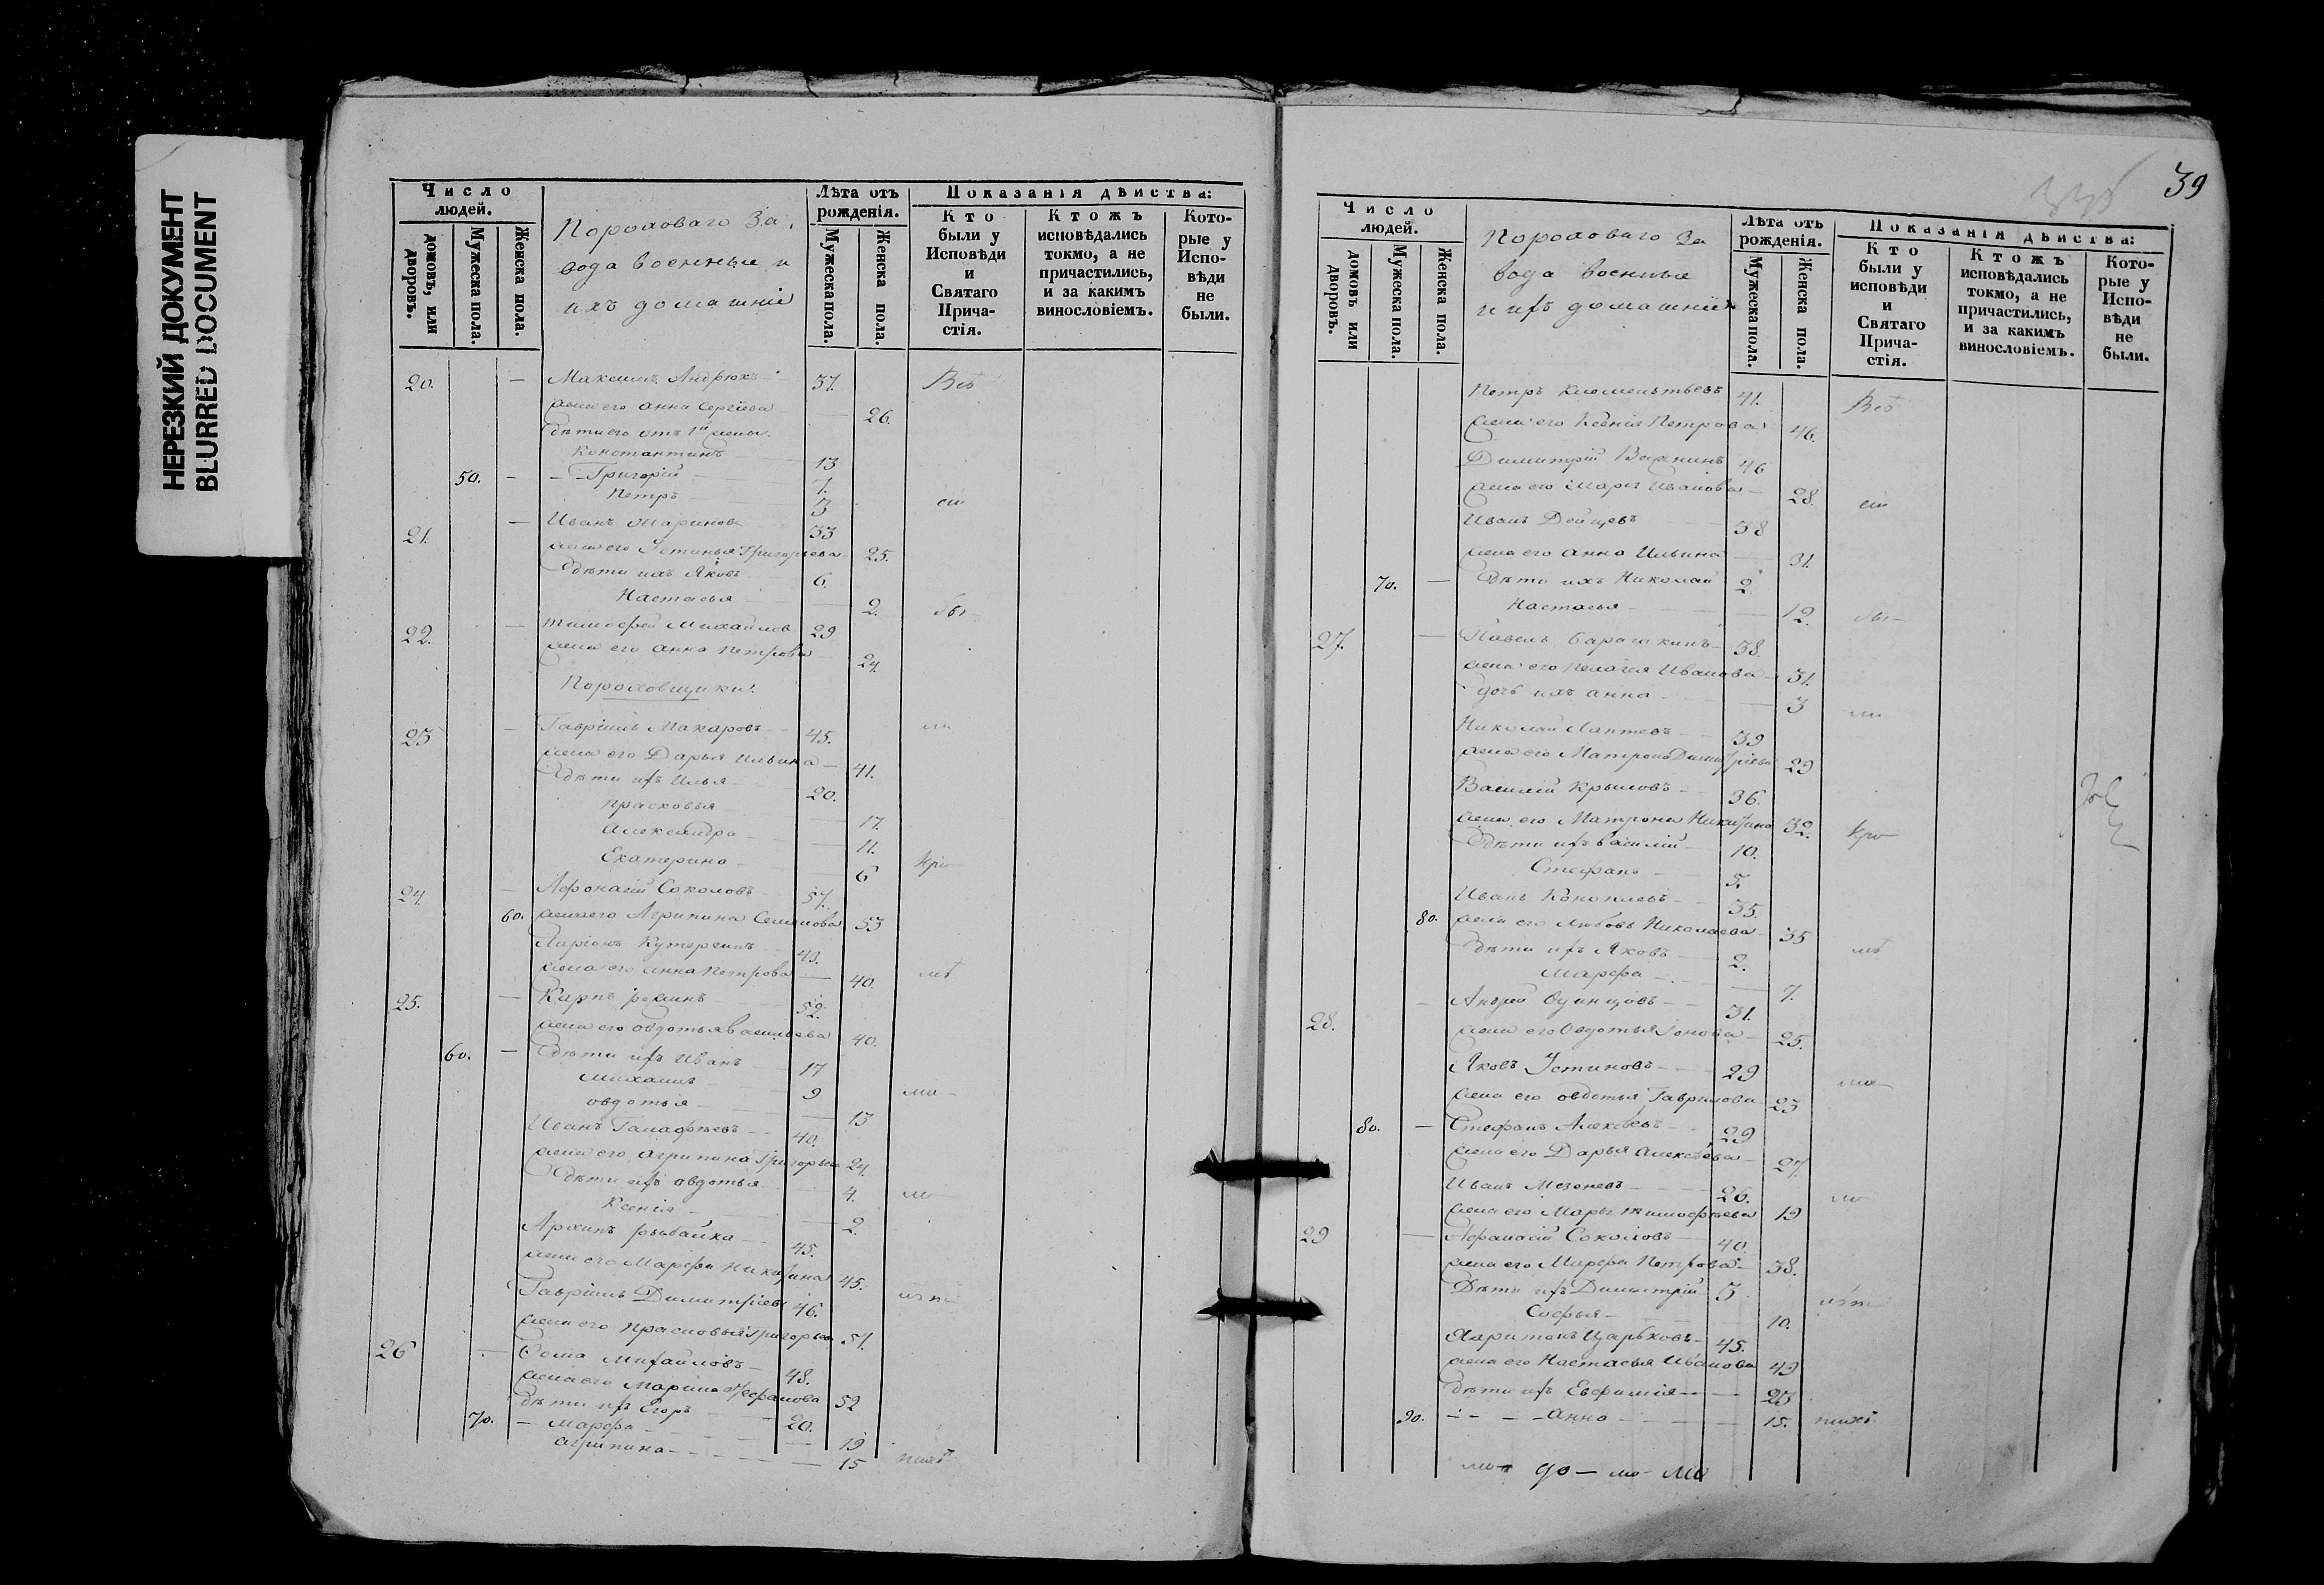 НЕРЕЗКИЙ ДОКУМЕНТ
BLURRED DOCUMENT
Число людей.
домовъ, или дворовъ.
Мужеска пола.
Женска пола.
Пороховаго За-
вода военные и
ихъ домашніе
Лѣта отъ рожденія.
Мужеска пола.
Женска пола.
Показанія дѣйства:
Кто были у Исповѣди и Святаго Прича-стія.
Ктожъ исповѣдались токмо, а не причастились, и за какимъ винословіемъ.
Кото-рые у Испо-вѣди не были.
20. — Максимъ 37. Всѣ
жена его Анна Сергіева 26.
дѣти его отъ 1й жены.
Константинъ 13
50. — Григорій 7.
Петръ 3
21. — Иванъ 33
жена его Устинья Григорьева 25.
дѣти ихъ Яковъ 6.
Настасья 2. бы-
22. — Тимофей Михайлов 29
жена его Анна Петрова 24.
Пороховщики.
23 — Гавріилъ Макаровъ 45.
жена его Дарья Ильина 41.
дѣти ихъ Илья 20.
Прасковья 17.
Александра 11.
Екатерина 6
24. — Афонасій Соколовъ 57.
60. жена его Агрипина Семенова 53
Ларіонъ Кутергинъ 43.
жена его Анна Петрова 40.
25. — Карпъ 52.
жена его Овдотья Васильева 40.
60. — дѣти ихъ Иванъ 17
Михаилъ 9
Овдотья 13
Иванъ 40.
жена его Агрипина Григорьева 24.
дѣти ихъ Овдотья 4.
Ксенія 2.
Архипъ Рыбалка 45.
жена его Марфа Никитина 45.
Гавріилъ Димитріевъ 46.
жена его Прасковья Григорьева 51.
26 — Фома Михайловъ 48.
жена его Марина Стефанова 52
дѣти ихъ Егоръ 20.
70. — Марфа 19
Агрипина 15
39
Число людей.
домовъ или дворовъ.
Мужеска пола.
Женска пола.
Пороховаго За
вода военные
и ихъ домашніе
Лѣта отъ рожденія.
Мужеска пола.
Женска пола.
Показанія дѣйства:
Кто были у исповѣди и Святаго Прича-стія.
Ктожъ исповѣдались токмо, а не причастились, и за какимъ винословіемъ.
Кото-рые у Испо-вѣди не были.
Петръ Клементьевъ 41. Всѣ
жена его Ксенія Петрова 46.
Димитрій 46
жена его Марья Иванова 28.
Иванъ 38
жена его Анна Ильина 31.
70. — дѣти ихъ Николай 2.
Настасья 12. бы-
27. — Павелъ Барашкинъ 38.
жена его Пелагея Иванова 31.
дочь ихъ Анна 3
Николай Лаптевъ 39
жена его Матрона Димитріева 29
Василій Крыловъ 36.
жена его Матрона Никитина 32.
дѣти ихъ Василій 10.
Стефанъ 5.
Иванъ 35.
80. жена его Любовь Николаева 35
дѣти ихъ Яковъ 2.
Марфа 7.
28. — Андрей Одинцовъ 31.
жена его Овдотья 25.
Яковъ Устиновъ 29
жена его Овдотья Гаврилова 23
80. — Стефанъ Алексѣевъ 29
жена его Дарья Алексѣева 27.
Иванъ Мезеневъ 26.
жена его Марья Тимофѣева 19
29 — Афанасій Соколовъ 40.
жена его Марфа Петрова 38.
Дѣти ихъ Димитрій 5
Софья 10.
Харитонъ Царьковъ 45.
жена его Настасья Иванова 49
дѣти ихъ Евфимія 23
90. — Анна 15.